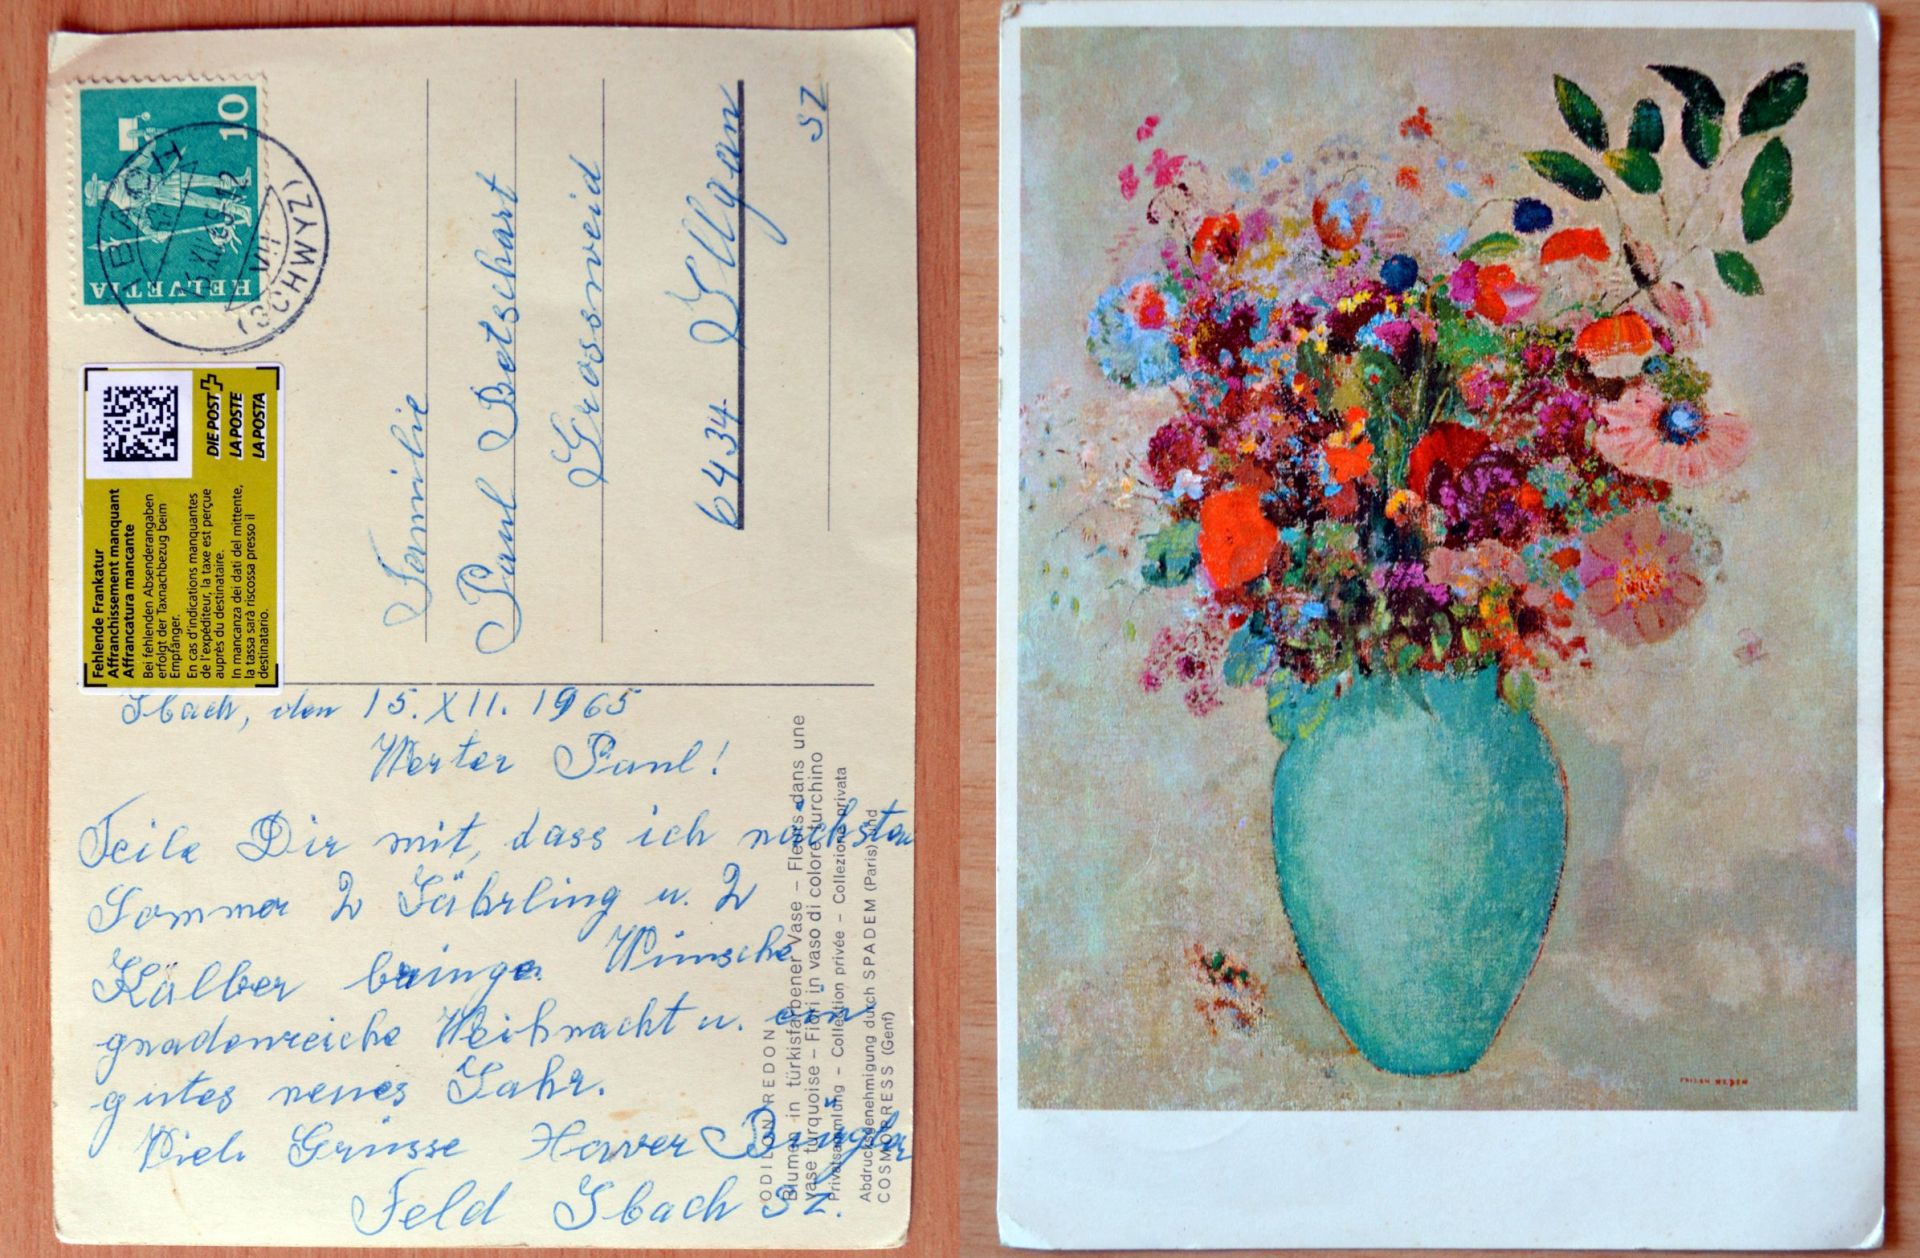 HELVETIA
10
(SCHWYZ)
Fehlende Frankatur
Affranchissement manquant
Affrancatura mancante
Bei fehlenden Absenderangaben
erfolgt der Taxnachbezug beim
Empfänger.
En cas d'indications manquantes
de l'expéditeur, la taxe est perçue
auprès du destinataire.
In mancanza dei dati del mittente,
la tassa sarà riscossa presso il
destinatario.
DIE POST
LA POSTE
LA POSTA
Familie
Paul Betschart
Grossweid
6434 Illgau
SZ
Ibach, den 15. XII. 1965
Werter Paul!
Teile Dir mit, dass ich nächsten
Sommer 2 Jährling u. 2
Kälber bringe. Wünsche
gnadenreiche Weihnacht u. ein
gutes neues Jahr.
Viele Grüsse Xaver
Feld Ibach SZ.
ODILON REDON
Blumen in türkisfarbener Vase – Fleurs dans une
vase turquoise – Fiori in vaso di colore turchino
Privatsammlung – Collection privée – Collezione privata
Abdrucksgenehmigung durch SPADEM (Paris) und
COSMOPRESS (Genf)